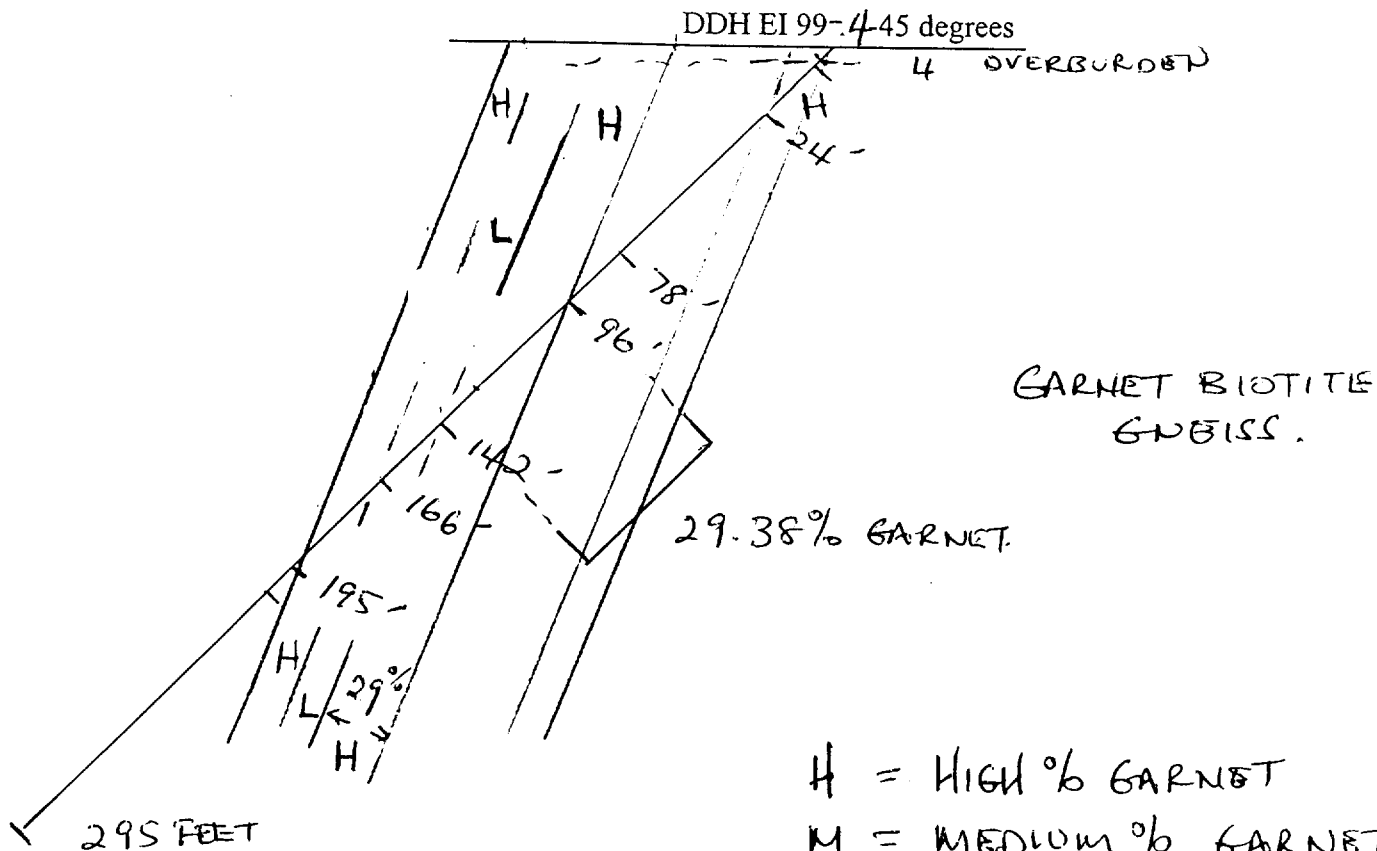 DDH EI 99-.4-45 degrees
4 OVERBURDEN
H
H
H
24-
L
78-
96-
GARNET BIOTITE
GNEISS.
142-
166-
29.38% GARNET
195-
H
29%
L
H
H = HIGH % GARNET
295 FEET
M = MEDIUM % GARNET